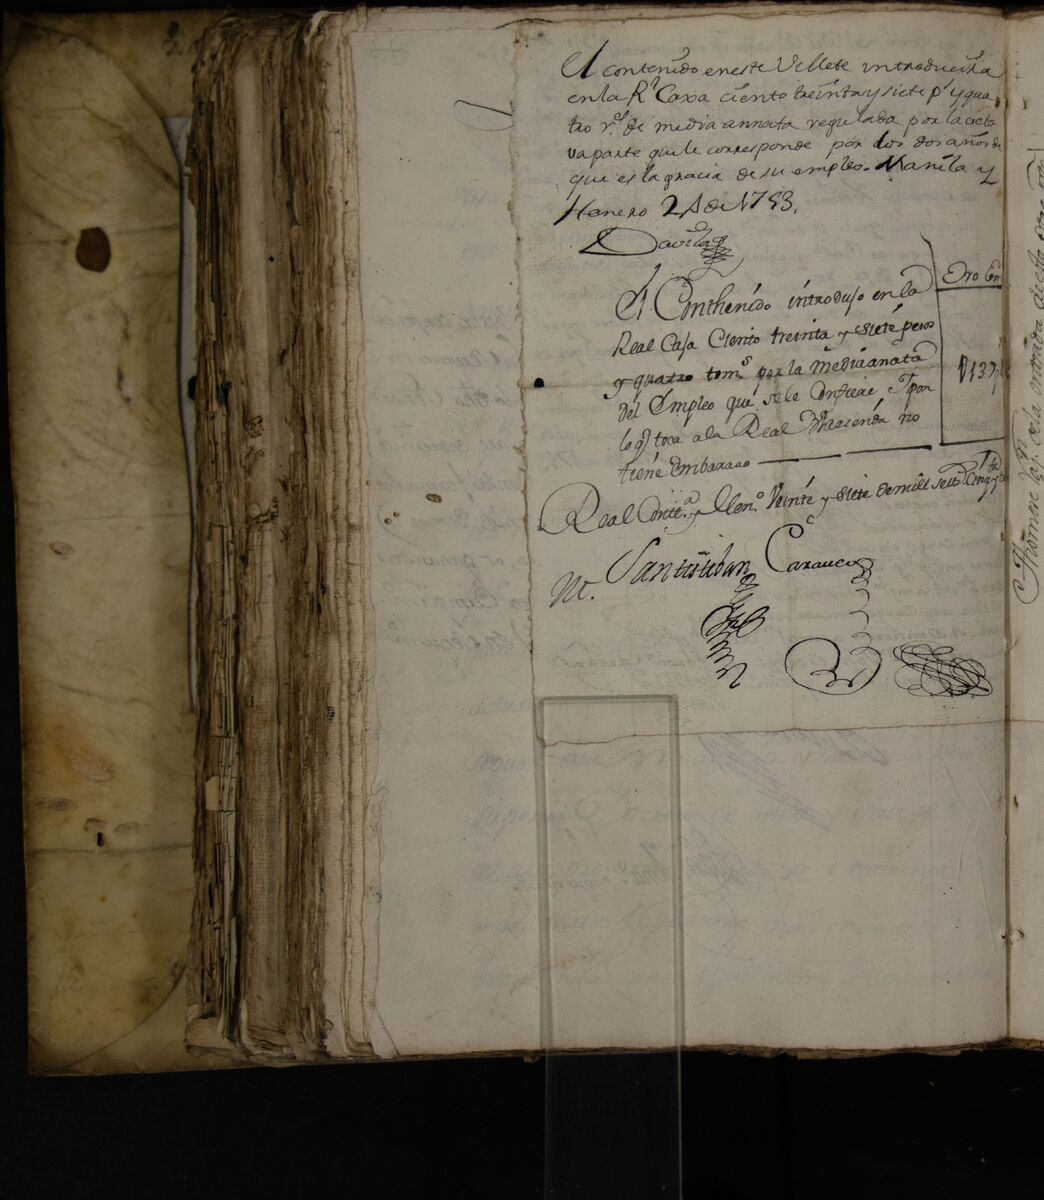 El contenido en este Villete introducirà
en la Rl Caxa ciento treinta y siete ps y qua
tro rs de media annata regulada por la octa
va parte que le corresponde por los dos años de
que es la gracia de su empleo. Manila y
Henero 2 de 1753.
Davila
El Conthenido introdujo en la
Real Caja Ciento treinta y siete pesos
y quatro toms por la mediaanata
del Empleo que se le Confiere, y por
lo q toca a la Real Hazienda no
tiene embarazo
Real Conta y Heno Veinte y siete de mill setts Cinqta y tres
M. Santistevan Caraveo